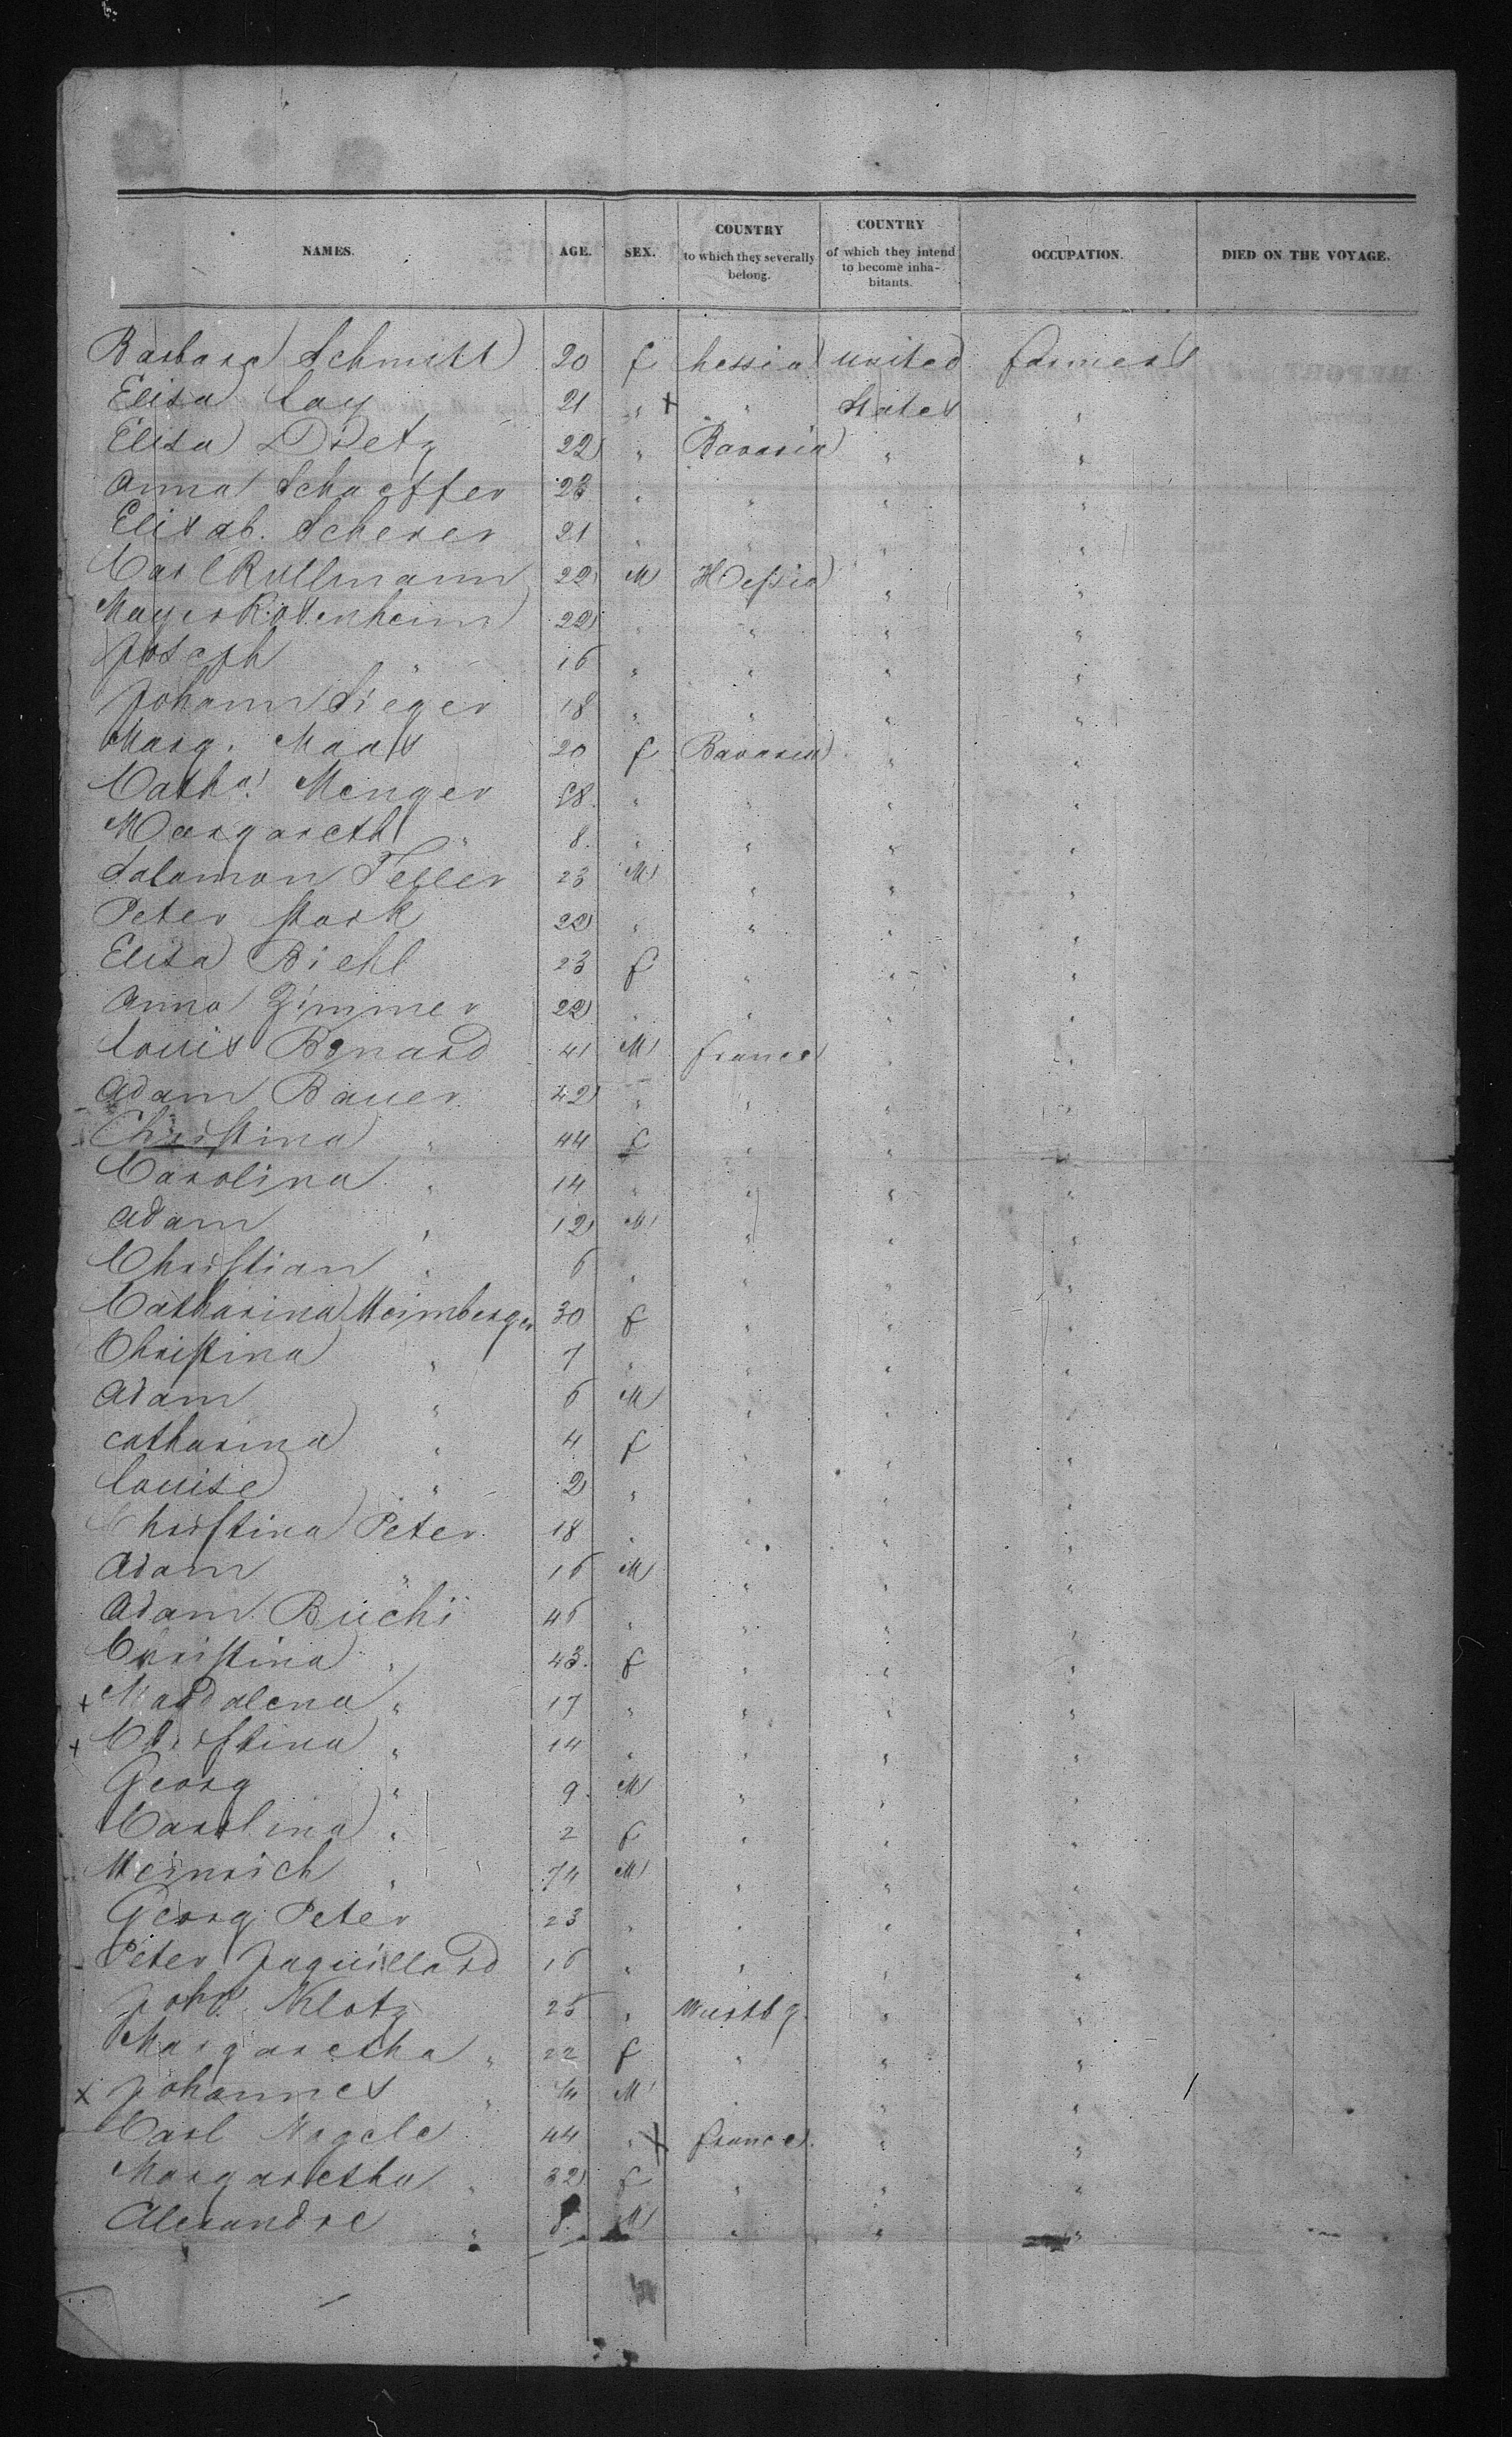 NAMES. AGE. SEX. COUNTRY to which they severally belong. COUNTRY of which they intend to become inhabitants. OCCUPATION. DIED ON THE VOYAGE.
Barbara Schmitt 20 f hessia united farmers
Elisa Lay 21 " + " States "
Elisa Dietz 22 " Bavaria " "
Anna Schaeffer 23 " " " "
Elisab. Scherer 21 " " " "
Carl Rullmann 22 M Hessia " "
Mayer Rosenheim 22 " " " "
Joseph " 16 " " " "
Johann Sieger 18 " " " "
Marg. Maas 20 f Bavaria " "
Catha. Menger 58. " " " "
Margareth " 8. " " " "
Salamon Feller 23 M " " "
Peter Stark 22 " " " "
Elisa Biehl 23 f " " "
Anna Zimmer 22 " " " "
Louis Bonard 41 M france " "
Adam Bauer 42 " " " "
Christina " 44 f " " "
Carolina " 14 " " " "
Adam " 12 M " " "
Christian " 6 " " " "
Catharina Heimberger 30 f " " "
Christina " 7 " " " "
Adam " 6 M " " "
catharina " 4 f " " "
Louise " 2 " " " "
Christina Peter 18 " " " "
Adam " 16 M " " "
Adam Büchi 46 " " " "
Christina " 43. f " " "
+ Magdalena " 17 " " " "
+ Christina " 14 " " " "
Georg " 9 M " " "
Carolina " 2 f " " "
Heinrich " 74 M " " "
Georg Peter 23 " " " "
Peter Jaquillard 16 " " " "
Joha. Klotz 25 " Wurtbg. " "
Margaretha " 22 f " " "
x Johannes " M " "
Carl Nagele 44 " x france. " "
Margaretha " 32 f " " "
Alexandre " 8. M " " "